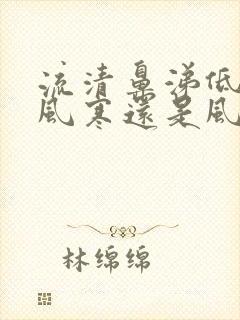 流清鼻涕低
風寒還是風
林绵绵